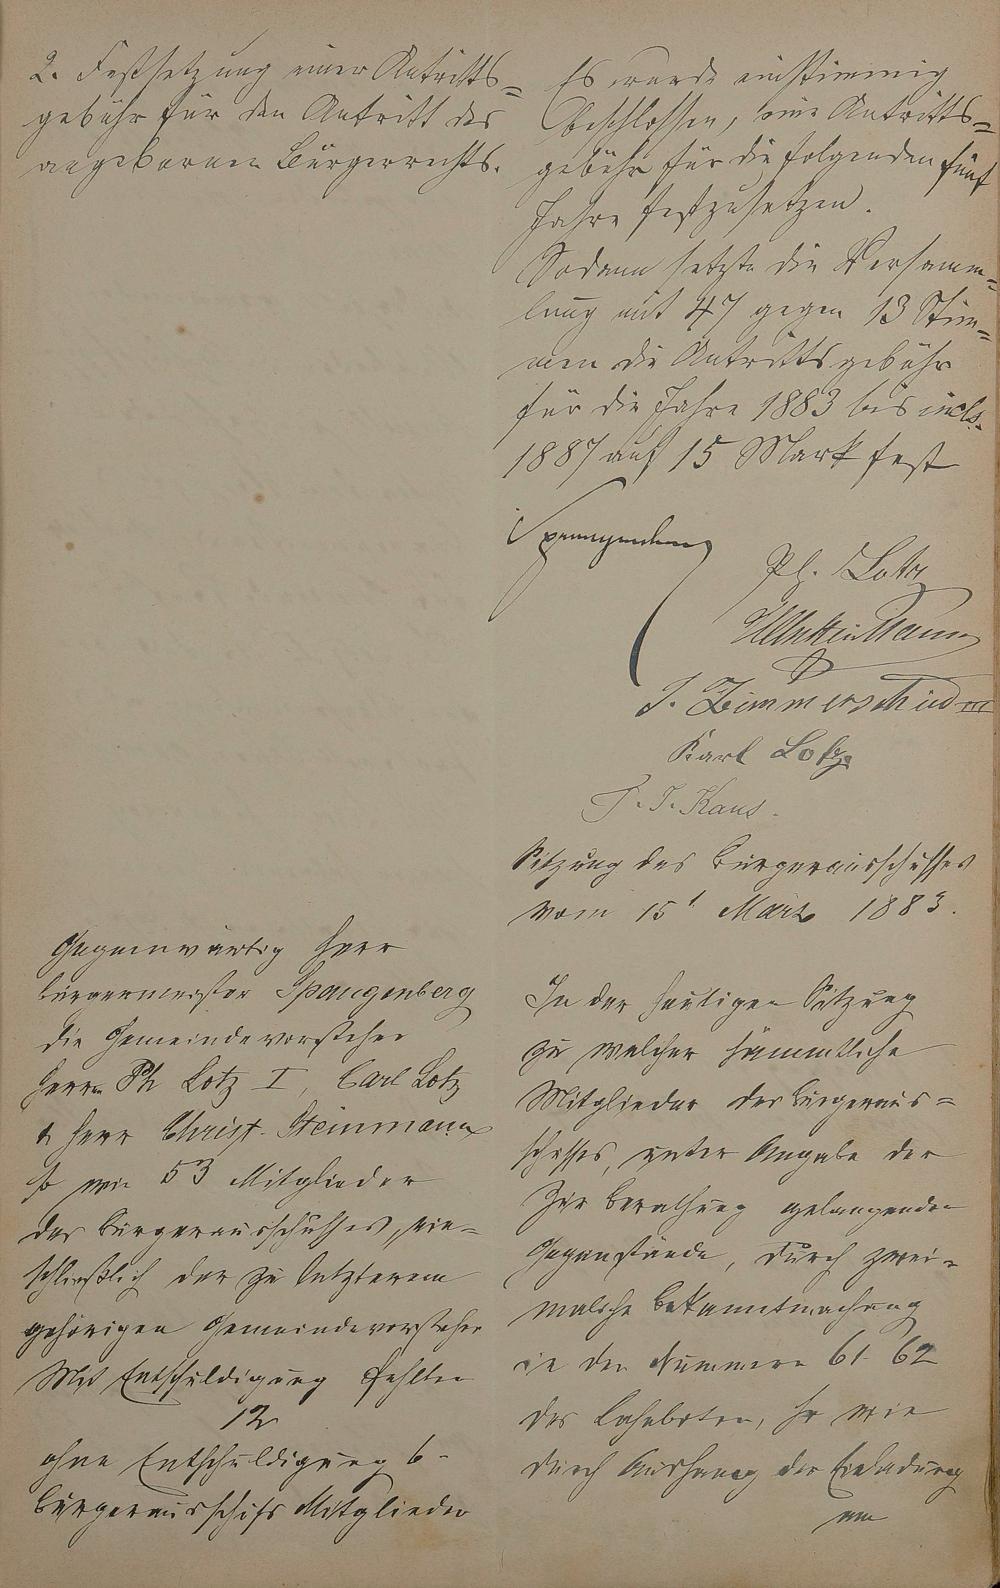 2. Festsetzung einer Antritts-
gebühr für den Antritt des
angeborenen Bürgerrechts.
Es wurde einstimmig
beschlossen, eine Antritts-
gebühr für die folgenden fünf
Jahre festzusetzen.
Sodann setzte die Versamm-
lung mit 47 gegen 13 Stim-
men die Antrittsgebühr
für die Jahre 1883 bis incl.
1887 auf 15 Mark fest
Spangenberg
Ph. Lotz
J. Zimmerschied III
Karl Lotz
F. J. Kaus.
Sitzung des Bürgerausschusses
vom 15t März 1883.
Gegenwärtig Herr
Bürgermeister Spangenberg
die Gemeindevorsteher
Herrn Ph Lotz I, Carl Lotz
& Herr Christ. Steinmann
so wie 53 Mitglieder
des Bürgerausschusses, ein-
schließlich der zu letzterem
gehörigen Gemeindevorsteher
Mit Entschuldigung fehlten
12
ohne Entschuldigung 6-
Bürgerausschuß Mitglieder
In der heutigen Sitzung
zu welcher sämmtliche
Mitglieder des Bürgeraus-
schusses, unter Angabe der
zur Berathung gelangenden
Gegenstände, durch zwei-
malige Bekanntmachung
in den Nummern 61 62
des Lahnboten, so wie
durch Aushang der Einladung
am